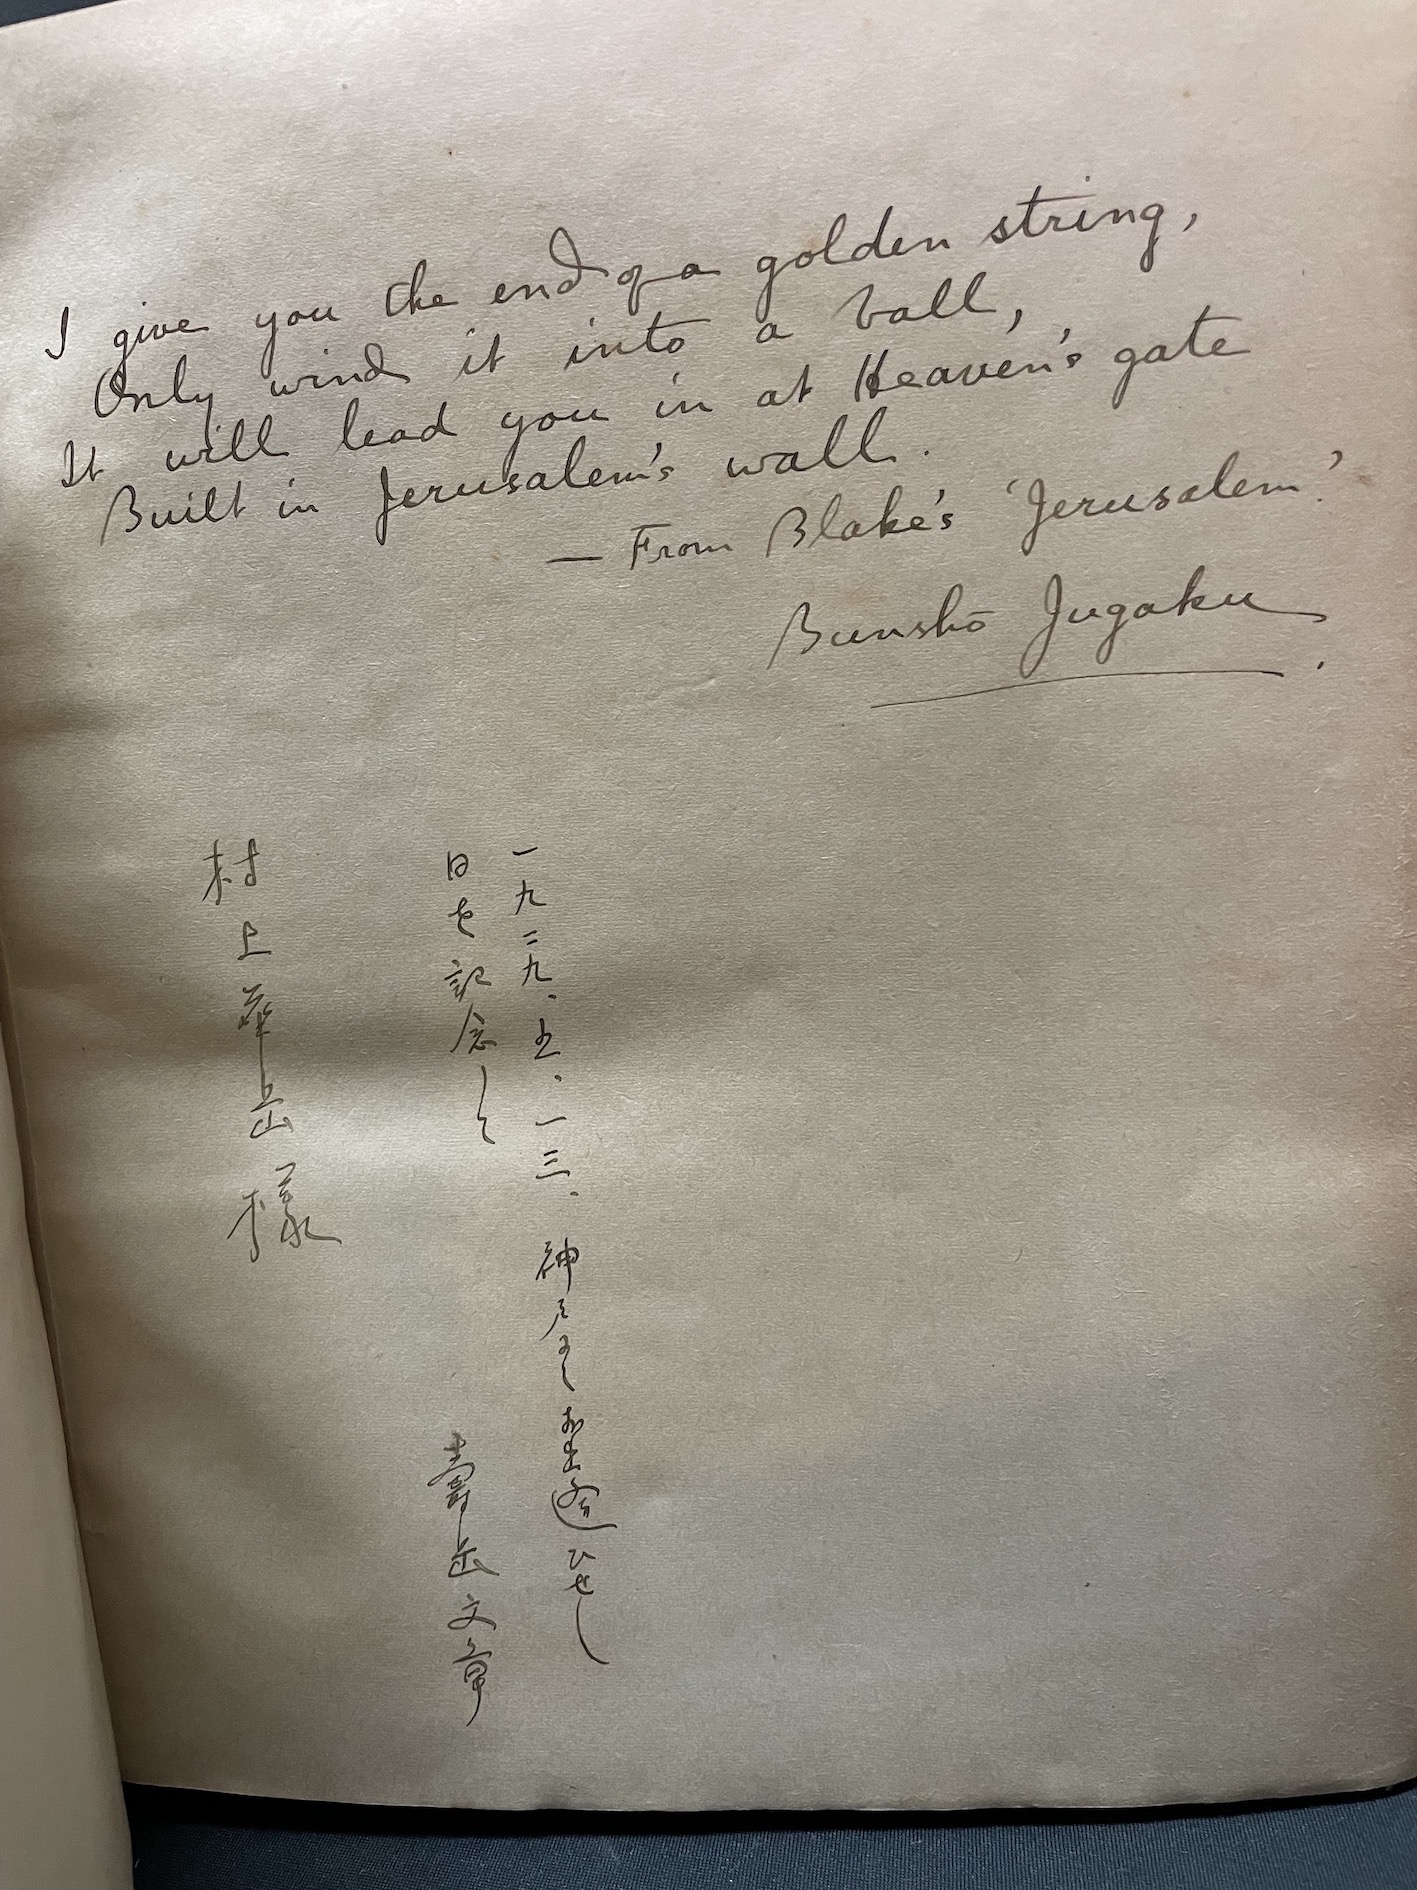 I give you the end of a golden string,
Only wind it into a ball,
It will lead you in at Heaven's gate
Built in Jerusalem's wall.
— From Blake's 'Jerusalem.'
Bunshō Jugaku.
一九二九、五、一三、神戸にて お出逢ひせし
日を記念して
壽岳文章
村上華岳樣